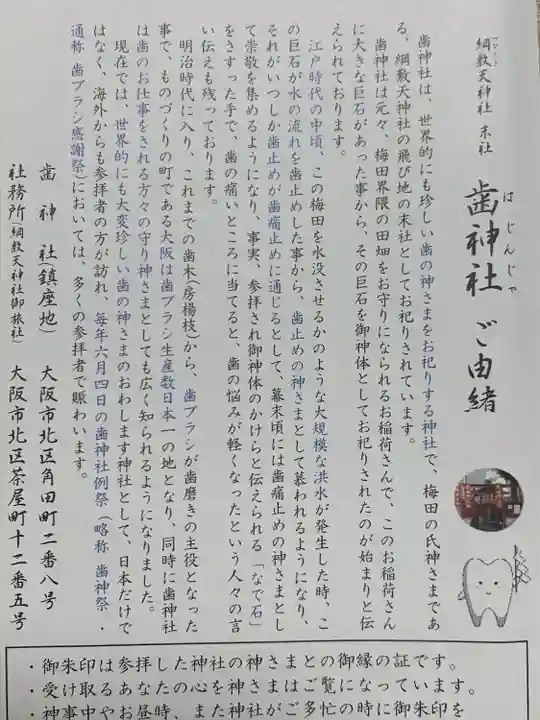 綱敷天神社 末社
歯神社 ご由緒
はじんじゃ
歯神社は、世界的にも珍しい歯の神さまをお祀りする神社で、梅田の氏神さまであ
る、綱敷天神社の飛び地の末社としてお祀りされています。
歯神社は元々、梅田界隈の田畑をお守りになられるお稲荷さんで、このお稲荷さん
に大きな巨石があった事から、その巨石を御神体としてお祀りされたのが始まりと伝
えられております。
江戸時代の中頃、この梅田を水没させるかのような大規模な洪水が発生した時、こ
の巨石が水の流れを歯止めした事から、歯止めの神さまとして慕われるようになり、
それがいつしか歯止めが歯痛止めに通じるとして、幕末頃には歯痛止めの神さまとし
て崇敬を集めるようになり、事実、参拝され御神体のかけらと伝えられる「なで石」
をさすった手で、歯の痛いところに当てると、歯の悩みが軽くなったという人々の言
い伝えも残っております。
明治時代に入り、これまでの歯木(房楊枝)から、歯ブラシが歯磨きの主役となった
事で、ものづくりの町である大阪は歯ブラシ生産数日本一の地となり、同時に歯神社
は歯のお仕事をされる方々の守り神さまとしても広く知られるようになりました。
現在では、世界的にも大変珍しい歯の神さまのおわします神社として、日本だけで
はなく、海外からも参拝者の方が訪れ、毎年六月四日の歯神社例祭(略称 歯神祭・
通称 歯ブラシ感謝祭)においては、多くの参拝者で賑わいます。
歯神社(鎮座地) 大阪市北区角田町二番八号
社務所(綱敷天神社御旅社) 大阪市北区茶屋町十二番五号
・御朱印は参拝した神社の神さまとの御縁の証です。
・受け取るあなたの心を神さまはご覧になっています。
・神事中やお昼時、また神社がご多忙の時に御朱印を